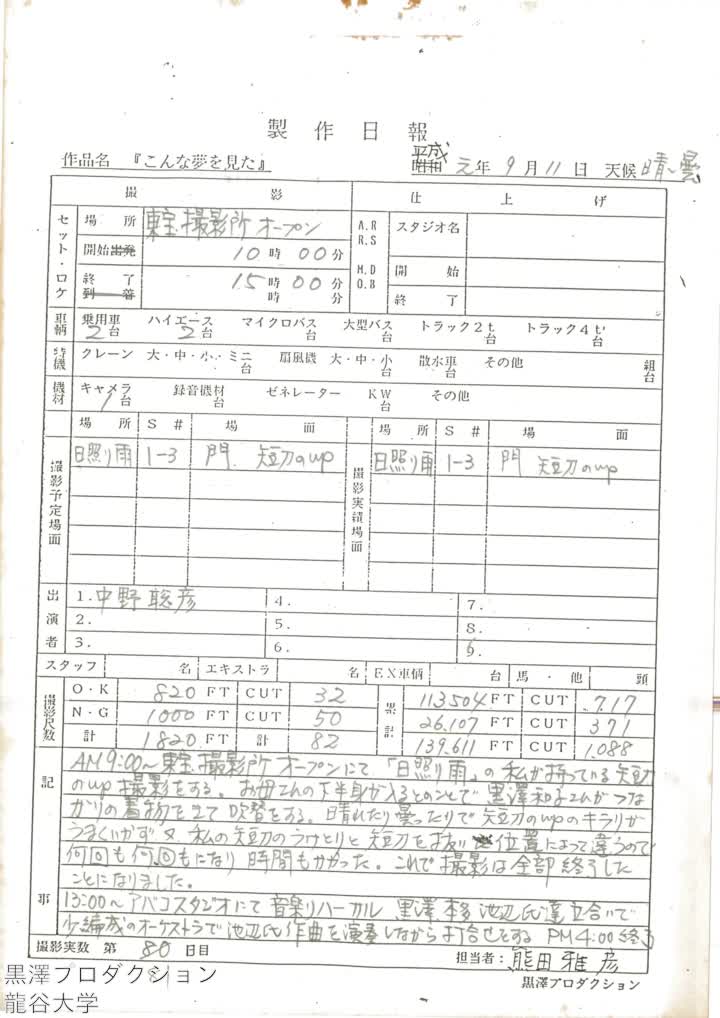 製作日報
作品名 『こんな夢を見た』 平成 昭和 元年 9月 11日 天候 晴〜曇
撮影 仕上げ
セット・ロケ 場所 東宝撮影所 オープン A.R R.S スタジオ名
開始 出発 10時00分
終了 到着 15時00分 M.D O.B 開始
時 分 終了
車輌 乗用車 2台 ハイエース 2台 マイクロバス 台 大型バス 台 トラック2t 台 トラック4t 台
特機 クレーン 大・中・小・ミニ 台 扇風機 大・中・小 台 散水車 台 その他 組 台
機材 キャメラ 1台 録音機材 台 ゼネレーター KW 台 その他
撮影予定場面 場所 S# 場面 撮影実績場面 場所 S# 場面
日照り雨 1-3 門 短刀のup 日照り雨 1-3 門 短刀のup
出演者 1.中野聡彦 4. 7.
2. 5. 8.
3. 6. 9.
スタッフ 名 エキストラ 名 EX車輌 台 馬・他 頭
撮影尺数 O・K 820 FT CUT 32 累計 113504 FT CUT 717
N・G 1000 FT CUT 50 26.107 FT CUT 371
計 1820 FT 計 82 139.611 FT CUT 1.088
記事
AM9:00〜東宝撮影所オープンにて、「日照り雨」の私が持っている短刀
のup撮影をする。お母さんの下半身が入るとのことで黒澤和子さんがつな
がりの着物をきて吹替をする。晴れたり曇ったりで短刀のupのキラリが
うまくいかず又私の短刀のうけとりと短刀を抜く位置によって違うので
何回も何回もになり時間もかかった。これで撮影は全部終了した
ことになりました。
13:00〜アバコスタジオにて音楽リハーサル 黒澤、本多、池辺氏達立合いで
少編成のオーケストラで池辺氏作曲を演奏しながら打合せとする PM4:00終了
撮影実数 第 80 日目 担当者: 熊田雅彦
81
黒澤プロダクション
黒澤プロダクション
龍谷大学